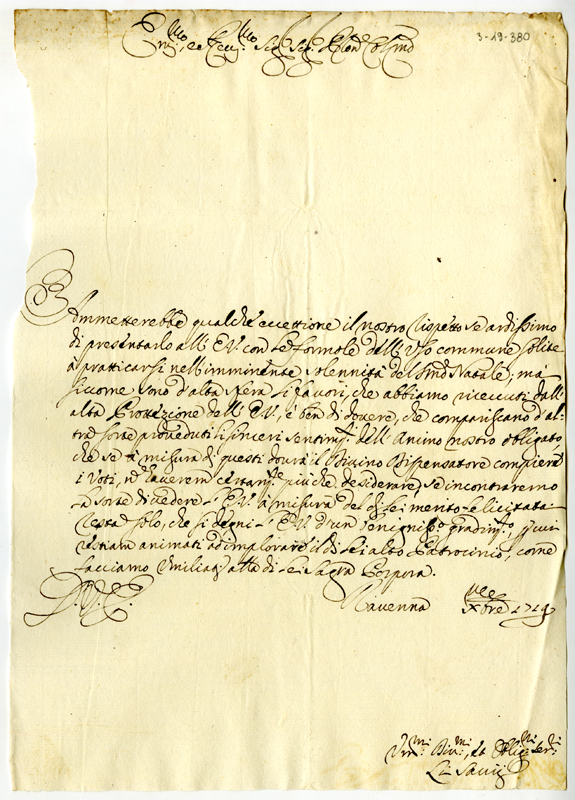 Em.mo, e Rev.mo Sig. Sig. Pron Col.mo
3-19-380
Ammetterebbe qualche eccettione il nostro rispetto se ardissimo
di presentarlo all'E.V. con le formole dell'Uso commune solite
à pratticarsi nell'imminente solennità del S.mo Natale; mà
siccome sono d'alta sfera li favori, che abbiamo ricevuti dall'
alta Protezzione dell'E.V., è ben di dovere, che compariscano d'al-
tra sorte proveduti li sinceri sentim.ti dell'Animo nostro obligato,
che se à misura di questi dovrà il Divino Dispensatore compiere
i Voti, nō haverem certam.te più che desiderare, se incontraremo
la sorte di vedere l'E.V. à misura del di Lei merito felicitata.
Resta solo, che si degni l'E.V. d'un benignis.o gradim.to,
restiam animati ad implorare il di Lei alto Patrocinio, come
facciamo umiliati alla di Lei Sagra Porpora.
D.V.E.
Ravenna
Xbre 1719
Um.mi Div.mi, et Oblig.mi Ser.i
Li Savij